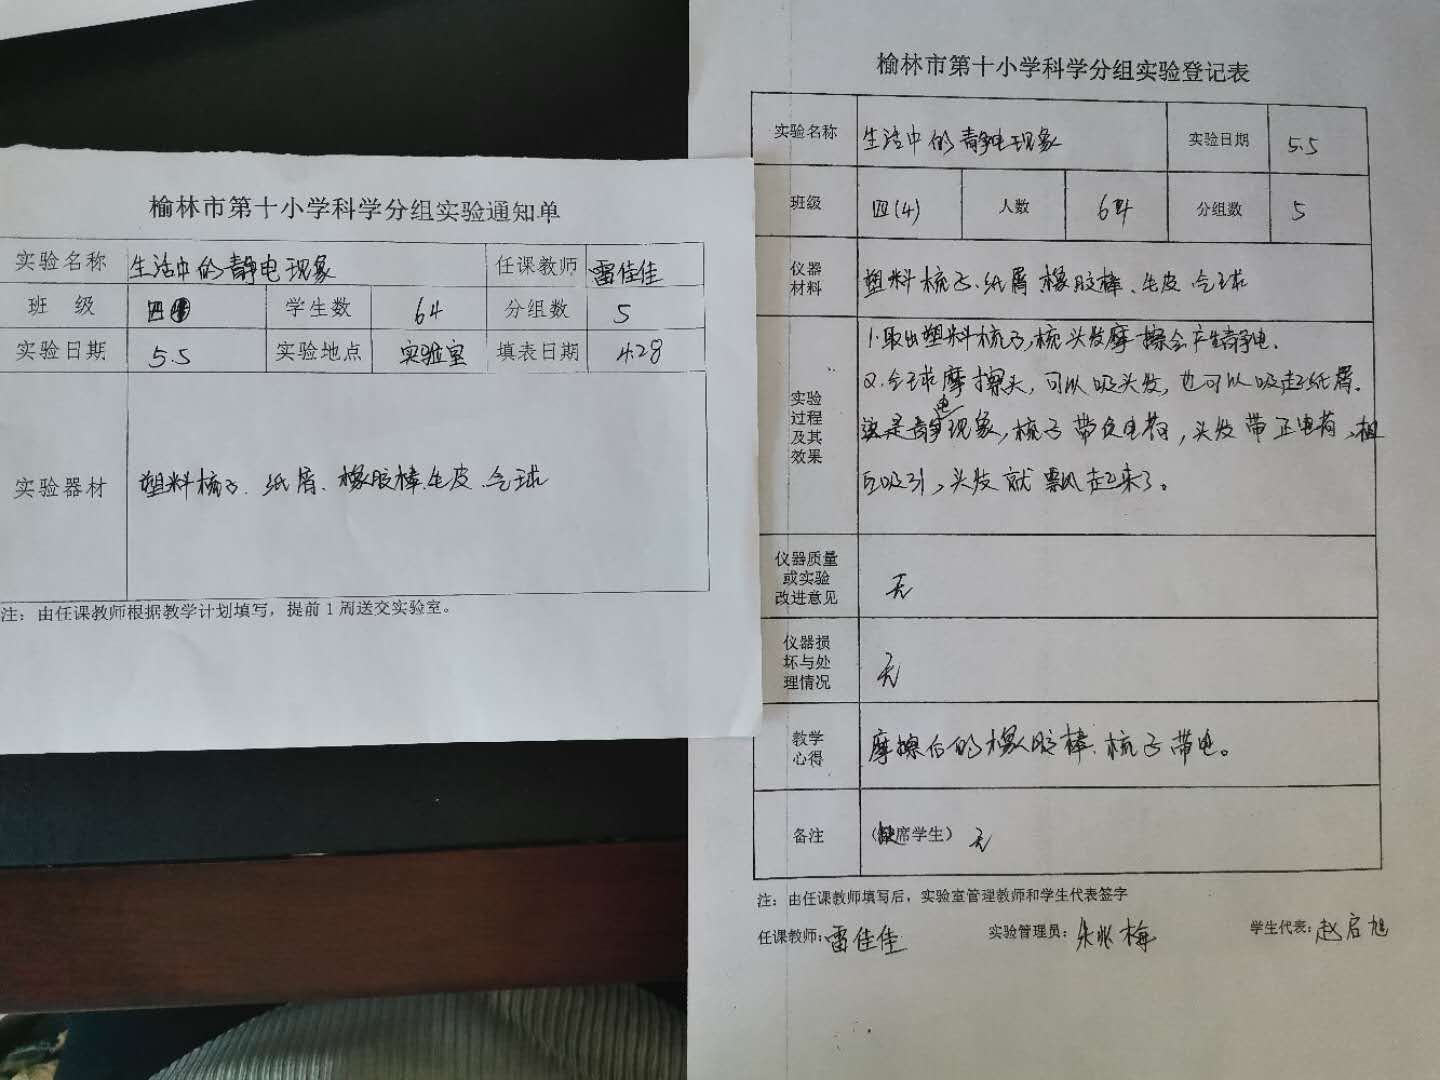 榆林市第十小学科学分组实验通知单
实验名称 生活中的静电现象 任课教师 雷佳佳
班 级 四 学生数 64 分组数 5
实验日期 5.5 实验地点 实验室 填表日期 4.28
实验器材 塑料梳子、纸屑、橡胶棒、毛皮、气球
注：由任课教师根据教学计划填写，提前1周送交实验室。
榆林市第十小学科学分组实验登记表
实验名称 生活中的静电现象 实验日期 5.5
班级 四(4) 人数 64 分组数 5
仪器
材料
塑料梳子、纸屑 橡胶棒、毛皮、气球
实验
过程
及其
效果
1.取出塑料梳子,梳头发摩擦会产生静电.
2.气球摩擦头，可以吸头发，也可以吸起纸屑.
这是静电现象,梳子带负电荷，头发带正电荷,相
互吸引，头发就飘起来了。
仪器质量
或实验
改进意见
无
仪器损
坏与处
理情况
无
教学
心得
摩擦后的橡胶棒、梳子带电。
备注 （缺席学生） 无
注：由任课教师填写后，实验室管理教师和学生代表签字
任课教师：雷佳佳 实验管理员：朱兆梅 学生代表：赵启旭